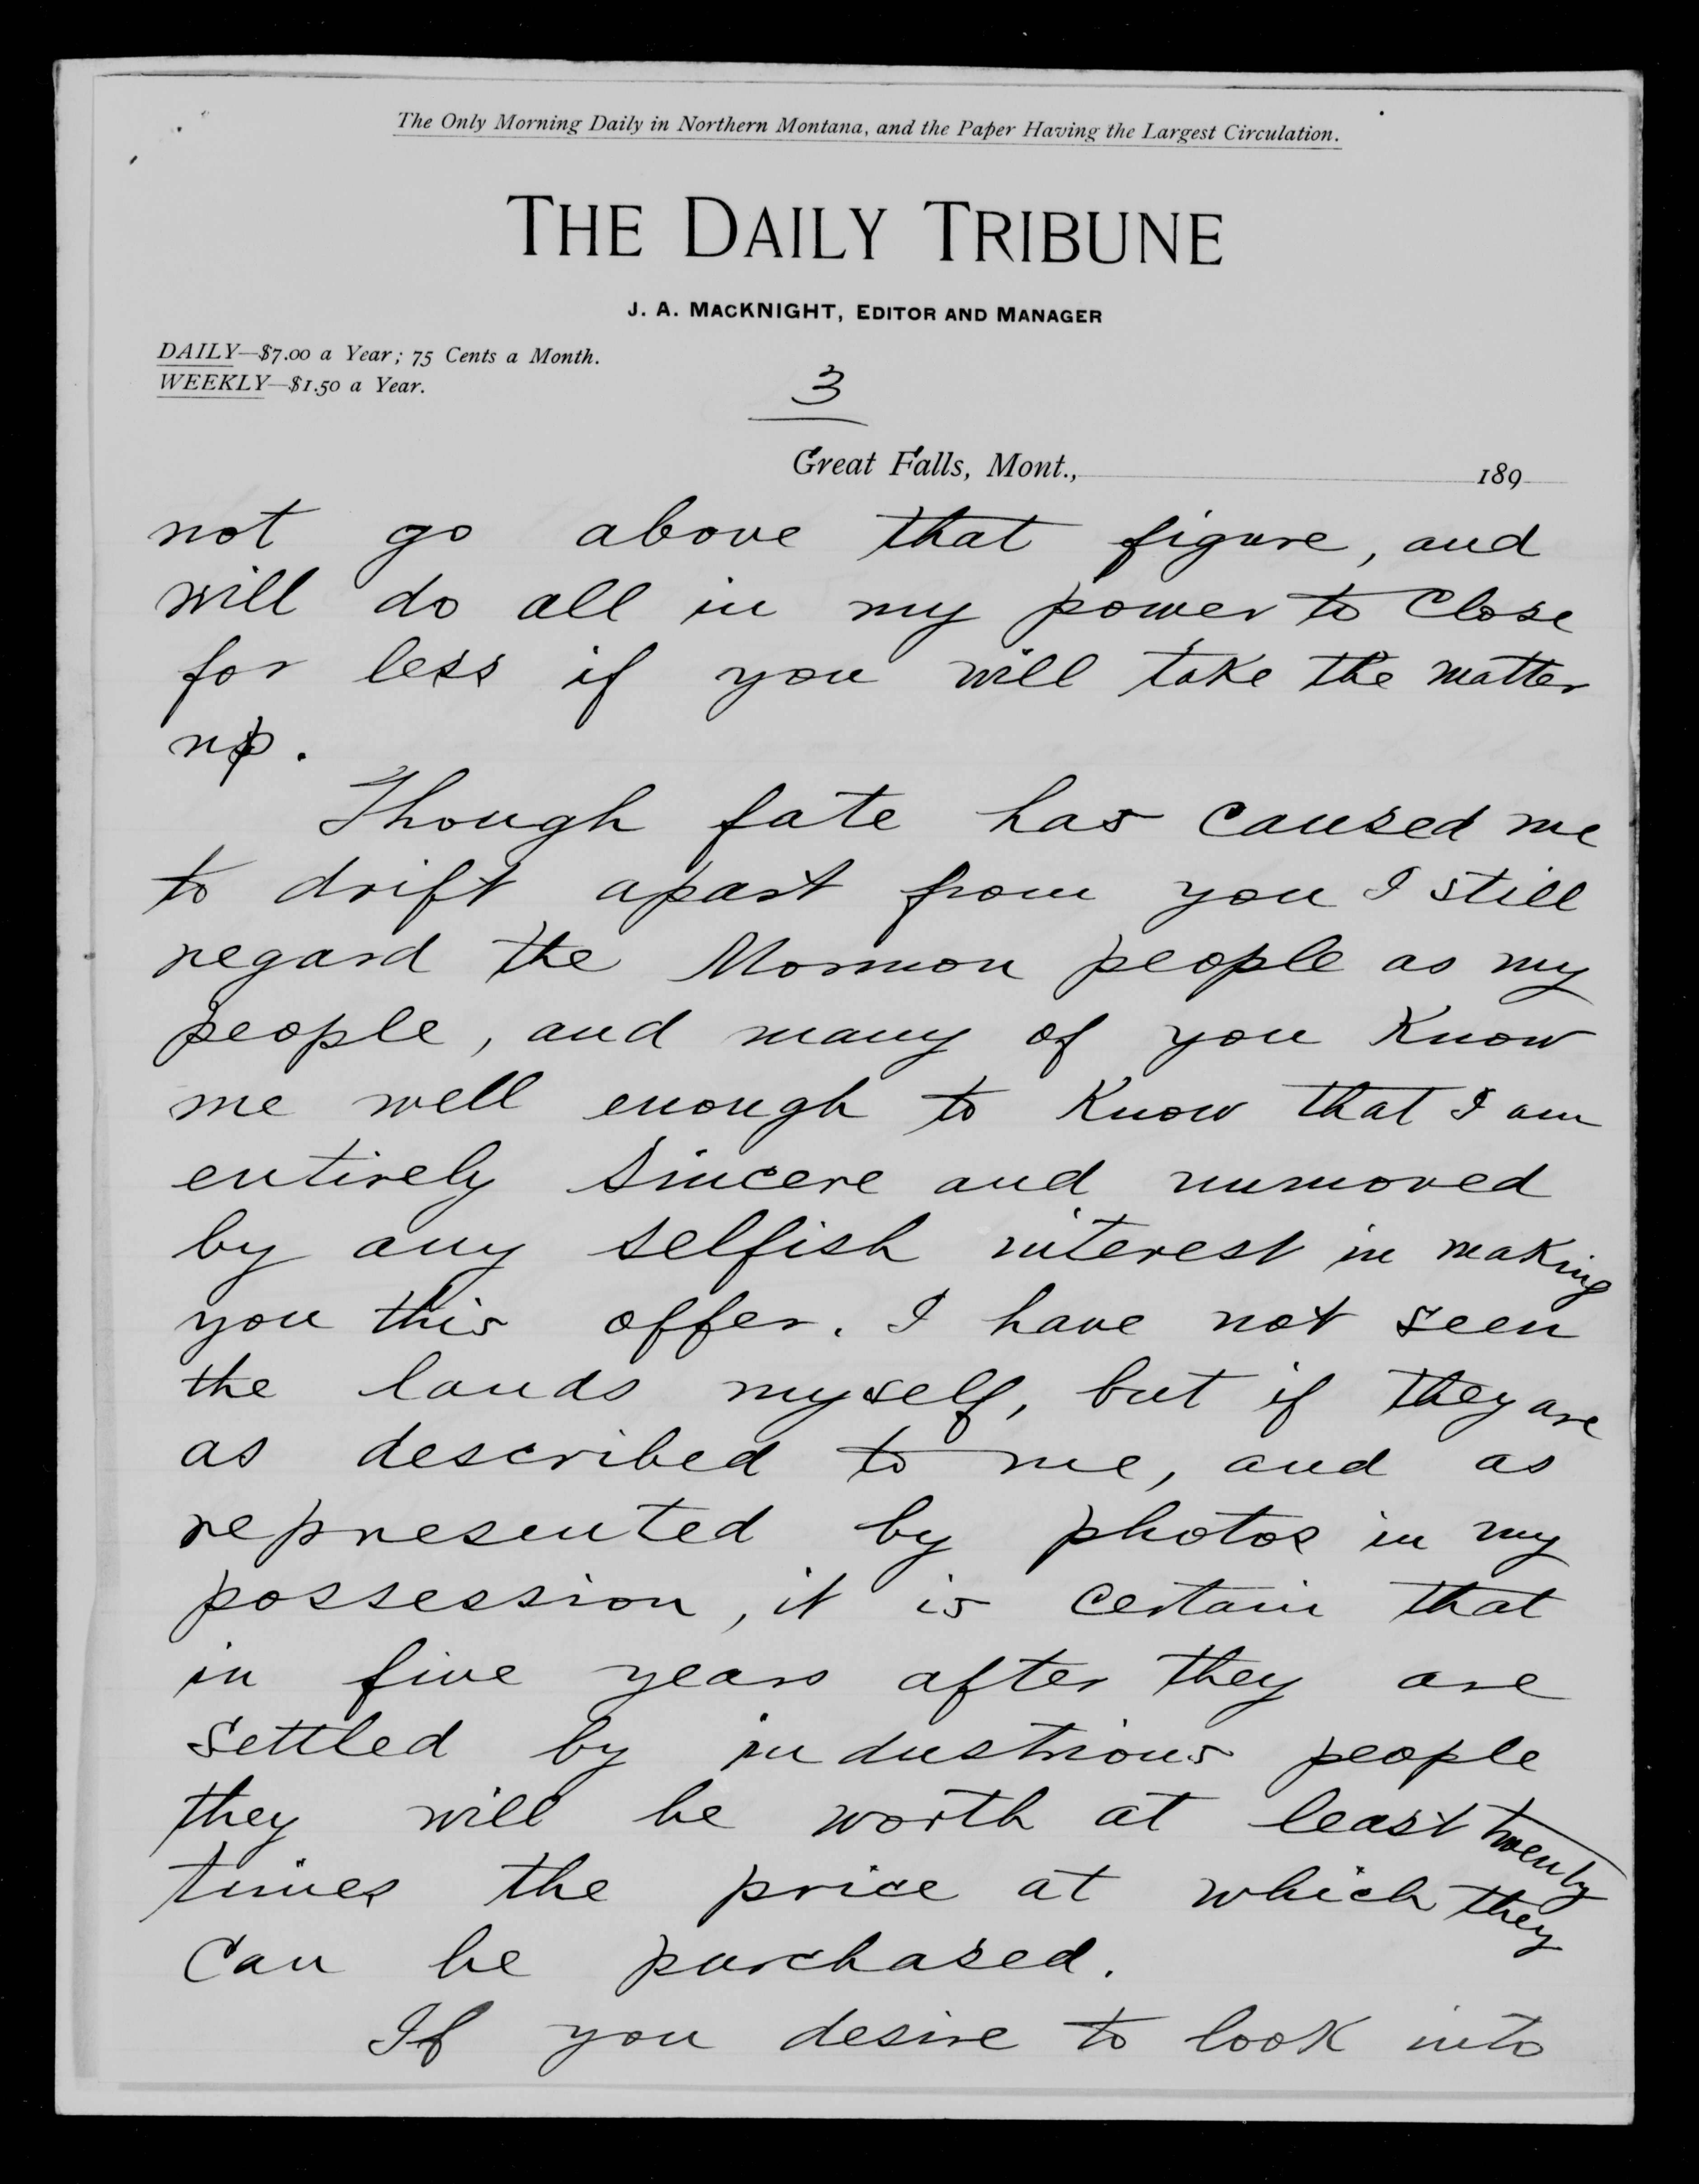 The Only Morning Daily in Northern Montana, and the Paper Having the Largest Circulation.
THE DAILY TRIBUNE
J. A. MACKNIGHT, EDITOR AND MANAGER
DAILY—$7.00 a Year; 75 Cents a Month.
WEEKLY—$1.50 a Year.
3
Great Falls, Mont., 189
not go above that figure, and
will do all in my power to close
for less if you will take the matter
up.
Though fate has caused me
to drift apart from you I still
regard the Mormon people as my
people, and many of you know
me well enough to know that I am
entirely sincere and unmoved
by any selfish interest in making
you this offer. I have not seen
the lands myself, but if they are
as described to me, and as
represented by photos in my
possession, it is certain that
in five years after they are
settled by industrious people
they will be worth at least twenty
times the price at which they
can be purchased.
If you desire to look into